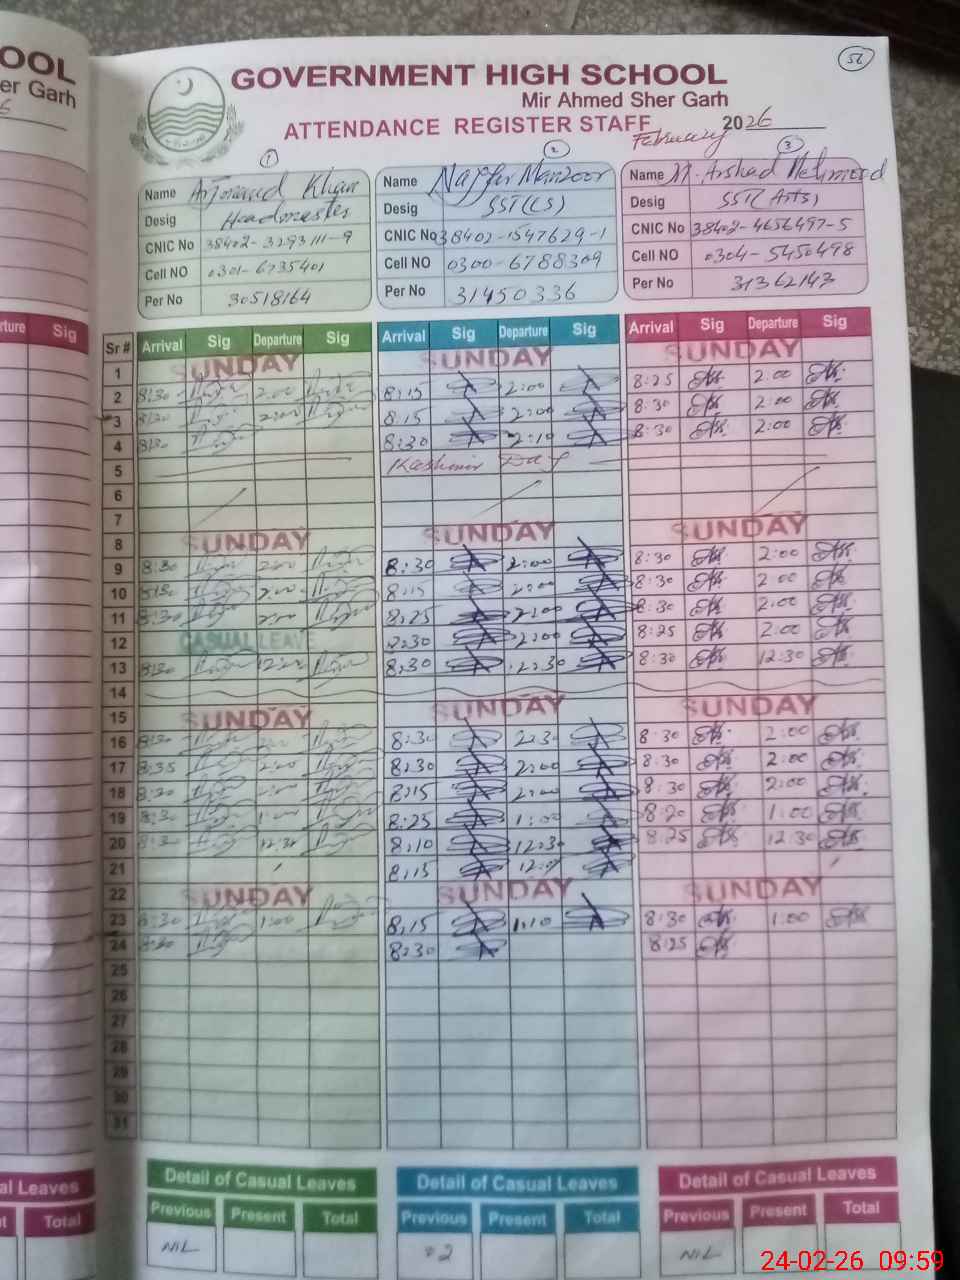 OOL
er Garh
56
GOVERNMENT HIGH SCHOOL
Mir Ahmed Sher Garh
ATTENDANCE REGISTER STAFF 2026
February
1 2 3
Name Khan
Desig Headmaster
CNIC No 38402-3293111-9
Cell NO 0301-6735401
Per No 30518164
Name Manzoor
Desig SST(CS)
CNIC No 38402-1547629-1
Cell NO 0300-6788309
Per No 31450336
Name M. Arshad Mehmood
Desig SST(Arts)
CNIC No 38402-4656497-5
Cell NO 0304-5450498
Per No 31362143
rture Sig
Sr # Arrival Sig Departure Sig Arrival Sig Departure Sig Arrival Sig Departure Sig
1 SUNDAY SUNDAY SUNDAY
2 8:30 2:00 8:15 2:00 8:25 2:00
3 8:30 2:00 8:15 2:00 8:30 2:00
4 8:30 8:30 2:10 8:30 2:00
5 Kashmir Day
6
7
8 SUNDAY SUNDAY SUNDAY
9 8:30 2:00 8:30 2:00 8:30 2:00
10 8:30 2:00 8:15 2:00 8:30 2:00
11 8:30 2:00 8:25 2:00 8:30 2:00
12 CASUAL LEAVE 2:00 8:25 2:00
13 8:30 8:30 12:30 8:30 12:30
14
15 SUNDAY SUNDAY SUNDAY
16 8:30 8:30 2:30 8:30 2:00
17 8:35 2:00 8:30 2:00 8:30 2:00
18 8:30 8:15 2:00 8:30 2:00
19 8:30 1:00 8:25 1:00 8:20 1:00
20 8:30 12:30 8:10 12:30 8:25 12:30
21 8:15
22 SUNDAY SUNDAY SUNDAY
23 8:30 1:00 8:15 1:10 8:30 1:00
24 8:30 8:30 8:25
25
26
27
28
29
30
31
al Leaves
Total
Detail of Casual Leaves Detail of Casual Leaves Detail of Casual Leaves
Previous Present Total Previous Present Total Previous Present Total
NIL 02 NIL
24-02-26 09:59